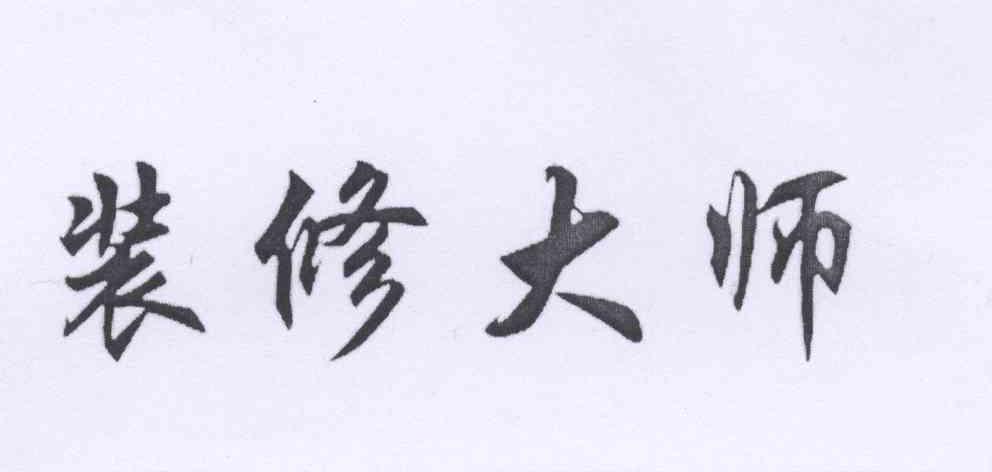 装修大师